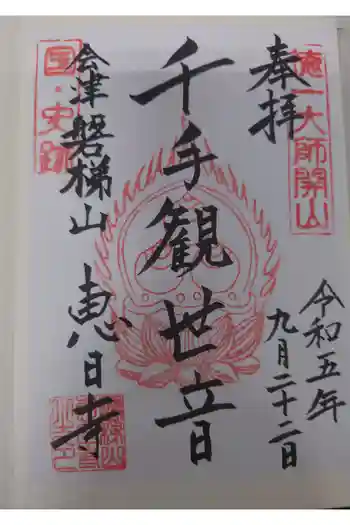 徳一大師開山
奉拝
令和五年
九月二十二日
千手観世音
会津磐梯山
恵日寺
国・史跡